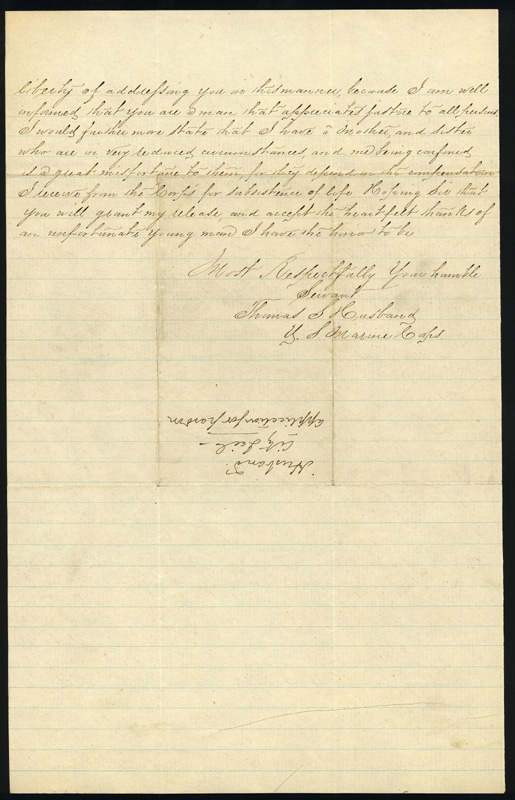 liberty of addressing you in this manner, because I am well
informed that you are a man that appreciates justice to all persons
I would further more state that I have a Mother, and sister
who are in very reduced circumstances and me being confined
is a great misfortune to them, for they depend on the compensation
I receive from the Corps for subsistence of life Hoping Sir that
you will grant my release, and accept the heartfelt thanks of
an unfortunate young man I have the honor to be
Most Respectfully Your humble
Servant
Thomas S Husband
U. S Marine Corps.
Husband
City Jail –
application for pardon